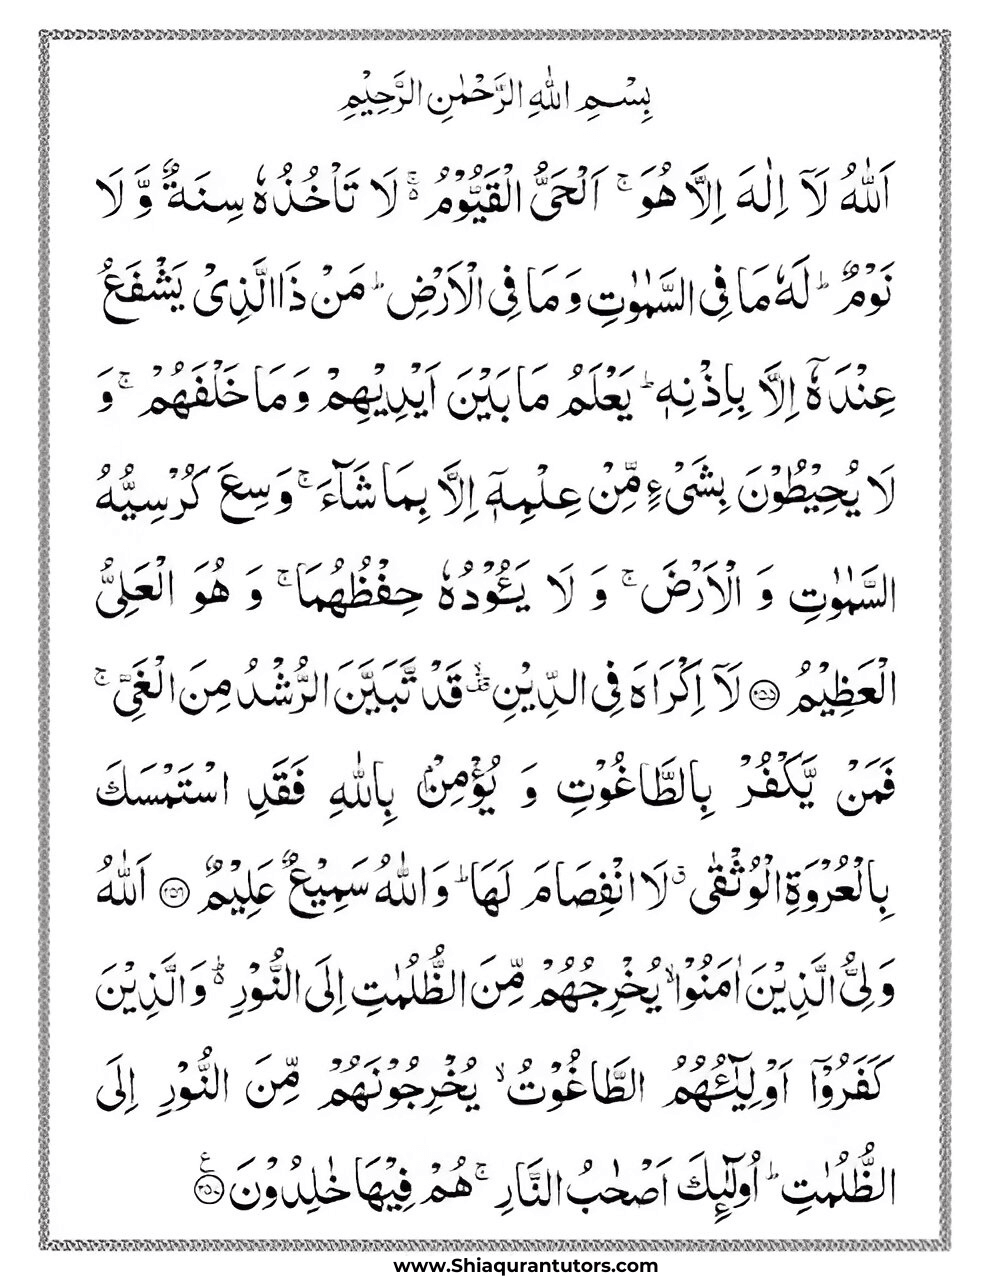 بِسْمِ اللّٰهِ الرَّحْمٰنِ الرَّحِیْمِ
اَللّٰهُ لَاۤ اِلٰهَ اِلَّا هُوَۚ اَلْحَیُّ الْقَیُّوْمُ ۬ۚ لَا تَاْخُذُهٗ سِنَةٌ وَّ لَا
نَوْمٌؕ لَهٗ مَا فِی السَّمٰوٰتِ وَ مَا فِی الْاَرْضِؕ مَنْ ذَا الَّذِیْ یَشْفَعُ
عِنْدَهٗۤ اِلَّا بِاِذْنِهٖؕ یَعْلَمُ مَا بَیْنَ اَیْدِیْهِمْ وَ مَا خَلْفَهُمْۚ وَ
لَا یُحِیْطُوْنَ بِشَیْءٍ مِّنْ عِلْمِهٖۤ اِلَّا بِمَا شَآءَۚ وَسِعَ كُرْسِیُّهُ
السَّمٰوٰتِ وَ الْاَرْضَۚ وَ لَا یَـُٔوْدُهٗ حِفْظُهُمَاۚ وَ هُوَ الْعَلِیُّ
الْعَظِیْمُ ﴿۲۵۵﴾ لَاۤ اِكْرَاهَ فِی الدِّیْنِ ۙ۫ قَدْ تَّبَیَّنَ الرُّشْدُ مِنَ الْغَیِّۚ
فَمَنْ یَّكْفُرْ بِالطَّاغُوْتِ وَ یُؤْمِنْۢ بِاللّٰهِ فَقَدِ اسْتَمْسَكَ
بِالْعُرْوَةِ الْوُثْقٰىۗ لَا انْفِصَامَ لَهَاؕ وَ اللّٰهُ سَمِیْعٌ عَلِیْمٌ ﴿۲۵۶﴾ اَللّٰهُ
وَلِیُّ الَّذِیْنَ اٰمَنُوْاۙ یُخْرِجُهُمْ مِّنَ الظُّلُمٰتِ اِلَى النُّوْرِ۬ؕ وَ الَّذِیْنَ
كَفَرُوْۤا اَوْلِیٰٓـُٔهُمُ الطَّاغُوْتُۙ یُخْرِجُوْنَهُمْ مِّنَ النُّوْرِ اِلَى
الظُّلُمٰتِؕ اُولٰٓىِٕكَ اَصْحٰبُ النَّارِۚ هُمْ فِیْهَا خٰلِدُوْنَ ﴿۲۵۷﴾ ع
www.Shiaqurantutors.com